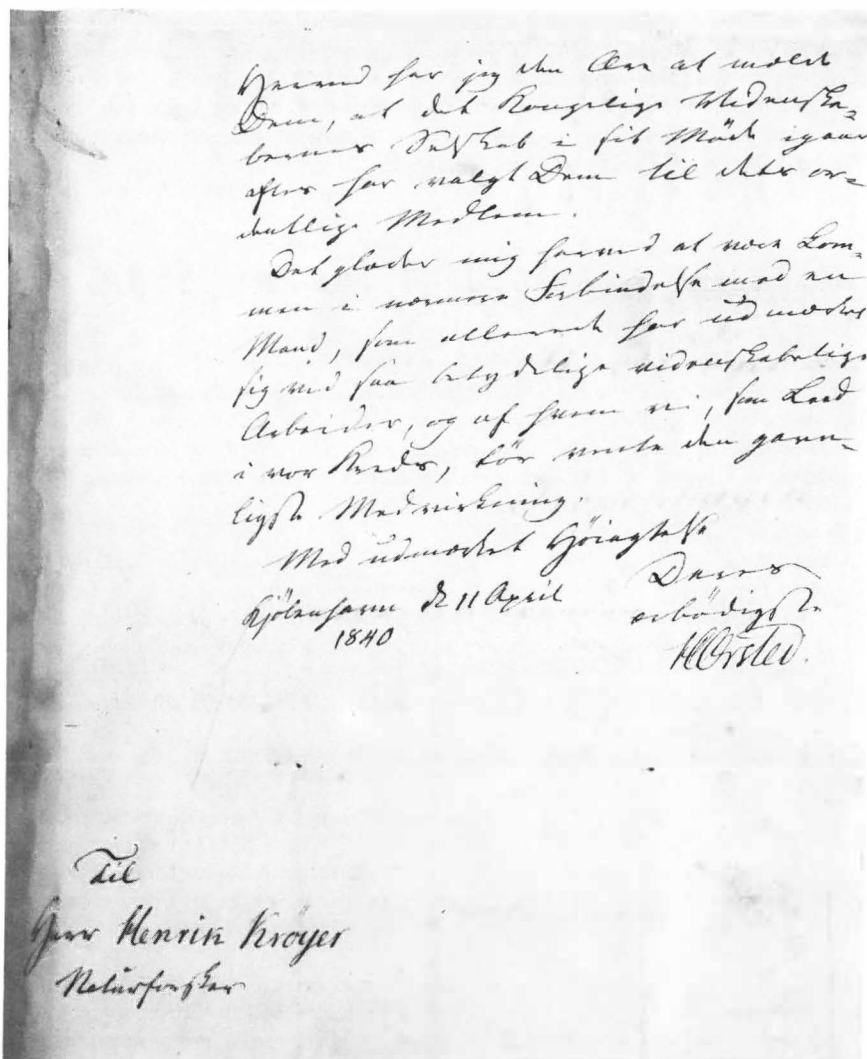 Herved har jeg den Ære at melde
Dem, at det Kongelige Videnska-
bernes Selskab i sit Möde igaar
aftes har valgt Dem til dets or-
dentlige Medlem.
Det glæder mig herved at være kom-
men i nærmere Forbindelse med en
Mand, som allerede har udmærket
sig ved saa betydelige videnskabelige
Arbeider, og af hvem vi, som Led
i vor Kreds, tör vente den gavn-
ligste Medvirkning.
Med udmærket Höiagtelse
Deres
Kjöbenhavn d 11 April
ærbödigste
1840
HCØrsted.
Til
Herr Henrik Kröyer
Naturforsker